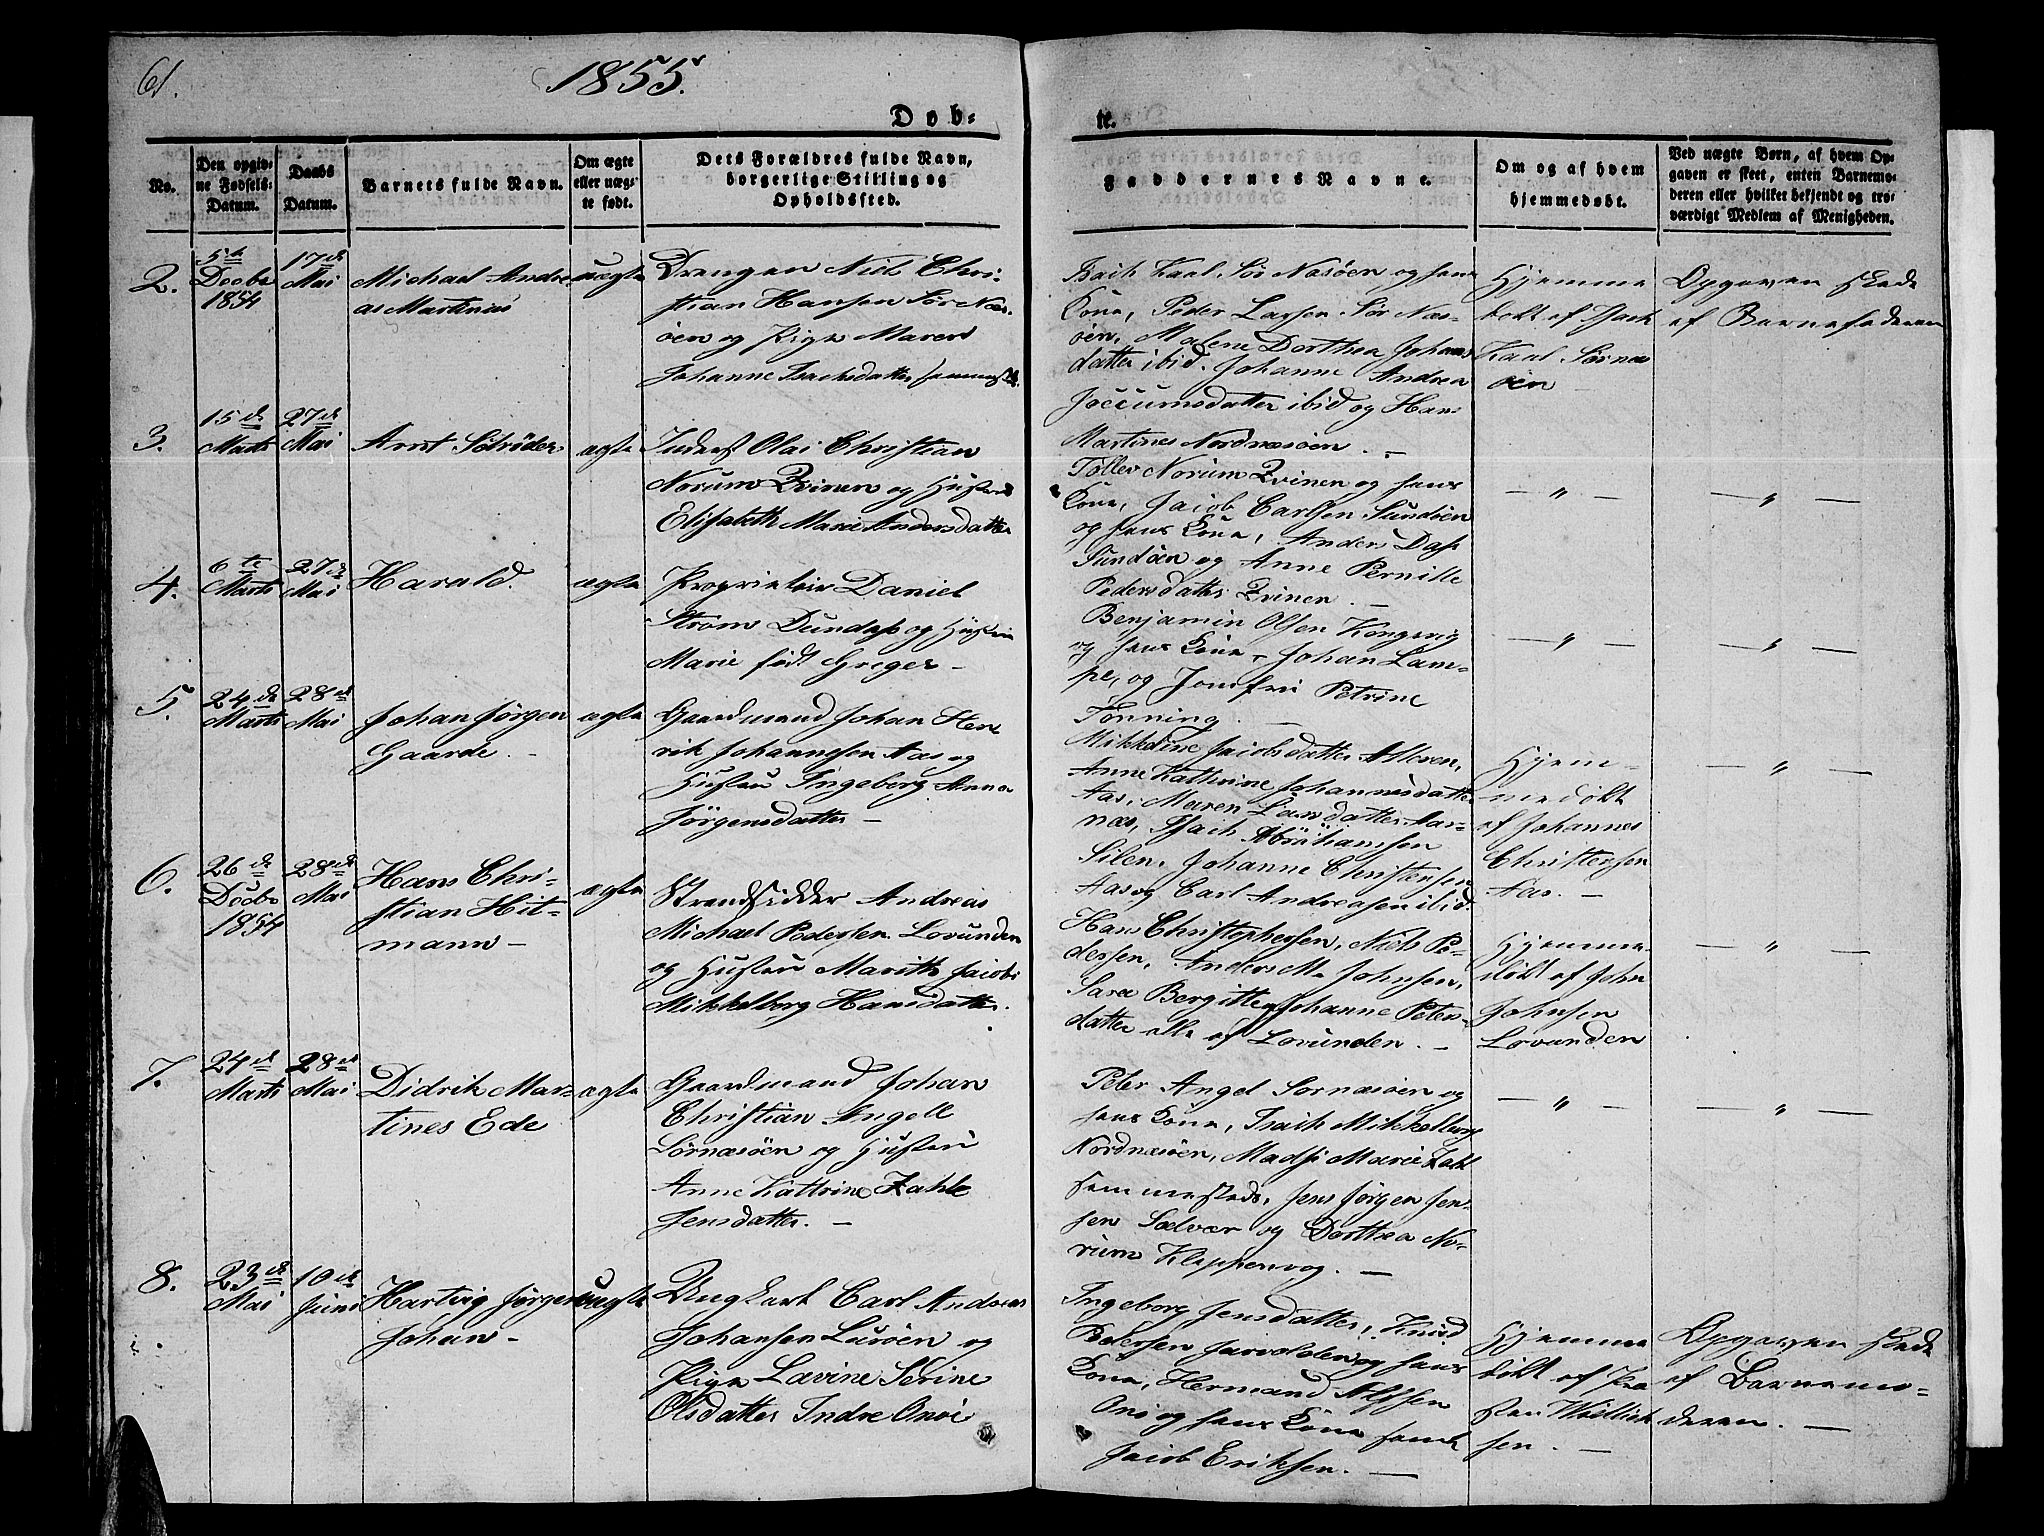 61.
1855.
Døb-
te.
No.
Den opgiv-
ne Fødsels-
Datum.
Daabs
Datum.
Barnets fulde Navn.
Om ægte
eller uægs-
te født.
Dets Forældres fulde Navn,
borgerlige Stilling og
Opholdssted.
Faddernes Navne.
Om og af hvem
hjemmedøbt.
Ved uægte Børn, af hvem Op-
gaven er skeet, enten Barnemo-
deren eller hvilket bekjendt og tro-
værdigt Medlem af Menigheden.
2.
5te
Decbr
1854
17de
Mai
Michael Andre
as Martinus
uægte
Drengen Niels Chri-
stian Hansen Sør Næs-
øen og Pige Maren
Johanne Isachsdatter sammest.
Isach Kaal Sør Næsøen og hans
Kona, Peder Larsen Sør Næs-
øen, Malene Dorthea Johans
datter ibid. Johanne Andrea
Joccumsdatter ibid og Hans
Martines Nordnæsøen. —
Hjemme
døbt af Isach
Kaal Sørnæs
øen —
Opgaven skede
af Barnefaderen
3.
15de
Marts
27de
Mai
Arnt Schrøder
ægte
Inderst Olai Christian
Norum Qvinen og Hustru
Elisabeth Marie Andersdatter
Tollev Norum Qvinen og hans
Kona, Jacob Carlsen Sundøen
og hans Kona, Anders Dass
Sundøen og Anne Pernille
Pedersdatter Qvinen. —
— " —
— " —
4.
6te
Marts
27de
Mai
Harald.
ægte
Proprietair Daniel
Strøm Dundass og Hustru
Marie født Greger —
Benjamin Olsen Kongsvig
og hans Kona, Johan Lam-
pe, og Jomfru Petrine
Tønning. —
— " —
— " —
5.
24de
Marts
28de
Mai
Johan Jørgen
Gaarde. —
ægte
Gaardmand Johan Hen
rik Johannesen Aas og
Hustru Ingeborg Anna
Jørgensdatter —
Mikkeline Jacobsdatter Alteren,
Anne Kathrine Johannesdatter
Aas, Maren Larsdatter Aar-
næs, Isach Abrahamsen
Silen, Johanne Christensen
Aas og Carl Andreasen ibid.
Hjem-
medøbt
af Johannes
Christensen
Aas. —
— " —
6.
26de
Decbr
1854
28de
Mai
Hans Chri-
stian Hit-
mann —
ægte
Strandsidder Andreas
Michael Pedersen Lovunden
og Hustru Marith Jacobs
Mikkelborg Hansdatter.
Hans Christophersen, Niels Pe-
dersen, Anders M. Johnsen,
Sara Bergitte, Johanne Peters-
datter alle af Lovunden. —
Hjemme-
døbt af John
Johnsen
Lovunden
— " —
7.
24de
Marts
28de
Mai
Didrik Mar-
tines Ede
ægte
Gaardmand Johan
Christian Angell
Sørnæsøen og Hustru
Anne Kattrine Zahle
Jensdatter. —
Peter Angel Sørnæsøen og
hans Kona, Isach Mikkelborg
Nordnæsøen, Madsi Marie
sammesteds, Jens Jørgen Jen-
sen Selvær og Dorthea No-
rum Kleppenvog. —
— " —
— " —
8.
23de
Mai
10de
Juni
Hartvig Jørgen
Johan —
uægte
Ungkarl Carl Andreas
Johansen Lurøen og
Pige Lævine Serine
Olsdatter Indre Onøi
Ingeborg Jensdatter, Knud
Pedersen og hans
Kona, Hermand
Onø og hans Kona samt
Jacob Eriksen. —
Hjemme
døbt af
sen.
Opgaven skede
af Barnemo-
deren. —